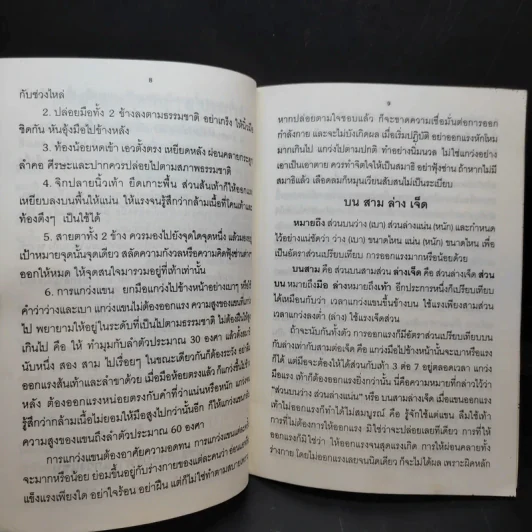 ๘
กับช่วงไหล่
2. ปล่อยมือทั้ง 2 ข้างลงตามธรรมชาติ อย่าเกร็ง ให้นิ้วมือ
ชิดกัน หันอุ้งมือไปข้างหลัง
3. ท้องน้อยหดเข้า เอวตั้งตรง เหยียดหลัง ผ่อนคลายกระดูก
ลำคอ ศีรษะและปากควรปล่อยไปตามสภาพธรรมชาติ
4. จิกปลายนิ้วเท้า ยึดเกาะพื้น ส่วนส้นเท้าก็ให้ออกแรง
เหยียบลงบนพื้นให้แน่น ให้แรงจนรู้สึกว่ากล้ามเนื้อที่โคนเท้าและ
ท้องตึงๆ เป็นใช้ได้
5. สายตาทั้ง 2 ข้าง ควรมองไปยังจุดใดจุดหนึ่ง แล้วมอง
เป้าหมายจุดนั้นจุดเดียว สลัดความกังวลหรือความคิดฟุ้งซ่าน
ออกให้หมด ให้จุดสนใจมารวมอยู่ที่เท้าเท่านั้น
6. การแกว่งแขน ยกมือแกว่งไปข้างหน้าอย่างเบาๆ
คำว่าว่างและเบา แกว่งแขนไม่ต้องออกแรง ความสูงของแขนที่แกว่ง
ไป พยายามให้อยู่ในระดับที่เป็นไปตามธรรมชาติ ไม่ฝืน
เกินไป คือ ให้ ทำมุมกับลำตัวประมาณ 30 องศา แล้วตั้งสมาธิ
นับหนึ่ง สอง สาม ไปเรื่อยๆ ในขณะเดียวกันก็ต้องระวัง
ออกแรงส้นเท้าและลำขาด้วย เมื่อมือห้อยตรงแล้ว แกว่งไปข้าง
หลัง ต้องออกแรงหน่อยตรงกับคำที่ว่าแน่นหรือหนัก แกว่ง
รู้สึกว่ากล้ามเนื้อไม่ยอมให้มือสูงไปกว่านั้นอีก ก็ให้แกว่ง
ความสูงของแขนถึงลำตัวประมาณ 60 องศา
การแกว่งแขนต้องอาศัยความอดทน การแกว่งแขนแต่ละ
จะมากหรือน้อย ย่อมขึ้นอยู่กับร่างกายของแต่ละคนว่า
แข็งแรงเพียงใด อย่าใจร้อน อย่าฝืน แต่ก็ไม่ใช่ทำตามสบาย
๙
หากปล่อยตามใจชอบแล้ว ก็จะขาดความเชื่อมั่นต่อการออก
กำลังกาย และจะไม่บังเกิดผล เมื่อเริ่มปฏิบัติ อย่าออกแรงหักโหม
มากเกินไป แกว่งไปตามปกติ ทำอย่างนิ่มนวล ไม่ใช่แกว่งอย่าง
เอาเป็นเอาตาย ควรทำจิตใจให้เป็นสมาธิ อย่าฟุ้งซ่าน ถ้าหากไม่มี
สมาธิแล้ว เลือดลมก็หมุนเวียนสับสนไม่เป็นระเบียบ
บน สาม ล่าง เจ็ด
หมายถึง ส่วนบนว่าง (เบา) ส่วนล่างแน่น (หนัก) และกำหนด
ไว้อย่างแน่ชัดว่า ว่าง (เบา) ขนาดไหน แน่น (หนัก) ขนาดไหน เพื่อ
เป็นอัตราส่วนเปรียบเทียบ การออกแรงมากหรือน้อยด้วย
บนสาม คือ ส่วนบนสามส่วน ล่างเจ็ด คือ ส่วนล่างเจ็ดส่วน ส่วน
บน หมายถึงมือ ล่าง หมายถึงเท้า อีกประการหนึ่งก็เปรียบเทียบ
ได้เหมือนกับว่า เวลาแกว่งแขนขึ้นข้างบน ใช้แรงเพียงสามส่วน
เวลาแกว่งลงต่ำ (ล่าง) ใช้แรงเจ็ดส่วน
ถ้าจะนับกันทั้งตัว การออกแรงก็มีอัตราส่วนเปรียบเทียบบน
กับล่างเท่ากับสามต่อเจ็ด คือ แกว่งมือไปข้างหน้านั้นจะเบาหรือแรง
ก็ได้ แต่มือจะต้องให้ได้ส่วนกับเท้า 3 ต่อ 7 อยู่ตลอดเวลา แกว่ง
มือแรง เท้าก็ต้องออกแรงยิ่งกว่านั้น นี่คือความหมายที่กล่าวไว้ว่า
"ส่วนบนว่าง ส่วนล่างแน่น" หรือ บนสามล่างเจ็ด เมื่อแขนออกแรง
เท้าไม่ออกแรงก็ทำได้ไม่สมบูรณ์ คือ รู้จักใช้แต่แขน ลืมใช้เท้า
การที่ไม่ต้องการให้ออกแรง มิใช่ว่าจะปล่อยเลยทีเดียว การที่ให้
ออกแรงก็มิใช่ว่า ให้ออกแรงจนสุดแรงเกิด การให้ผ่อนคลายทั้ง
ร่างกาย โดยไม่ออกแรงเลยจนนิดเดียว ก็จะไม่ได้ผล เพราะผิดหลัก